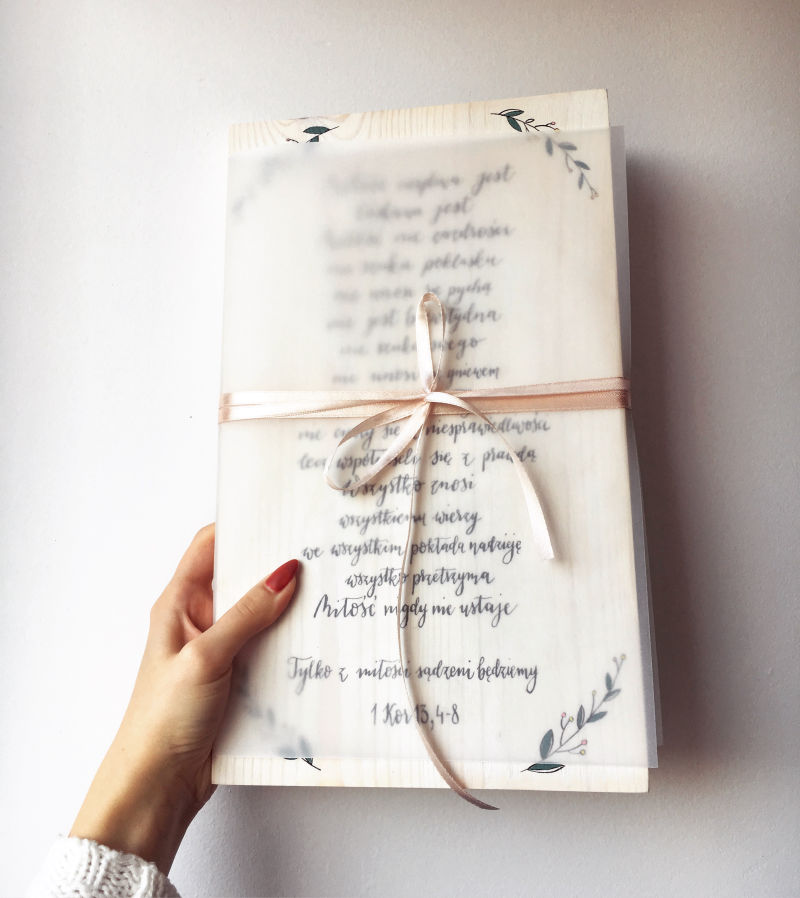 Miłość cierpliwa jest
łaskawa jest
Miłość nie zazdrości
nie szuka poklasku
nie unosi się pychą
nie jest bezwstydna
nie szuka swego
nie unosi się gniewem
nie cieszy się z niesprawiedliwości
lecz współweseli się z prawdą
wszystko znosi
wszystkiemu wierzy
we wszystkim pokłada nadzieję
wszystko przetrzyma
Miłość nigdy nie ustaje
Tylko z miłości sądzeni będziemy
1 Kor 13, 4-8